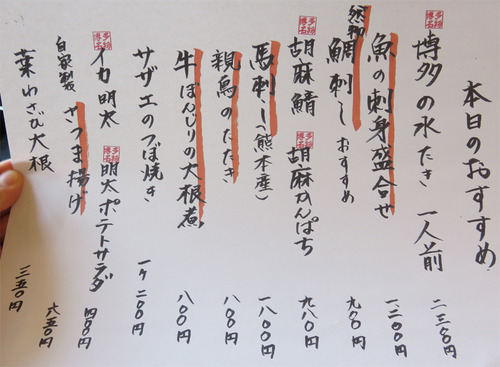 本日のおすすめ
博多名物 博多の水たき 一人前 二三〇〇円
魚の刺身盛合せ 一、二〇〇円
天然物 鯛刺し おすすめ 九〇〇円
博多名物 胡麻鯖 博多名物 胡麻かんぱち 九八〇円
馬刺し(熊本産) 一八〇〇円
親鳥のたたき 八〇〇円
牛ぼんじりの大根煮 八〇〇円
サザエのつぼ焼き 一ケ 二〇〇円
博多名物 イカ明太 博多名物 明太ポテトサラダ 四〇〇円
自家製 さつま揚げ 六五〇円
葉わさび大根 三五〇円